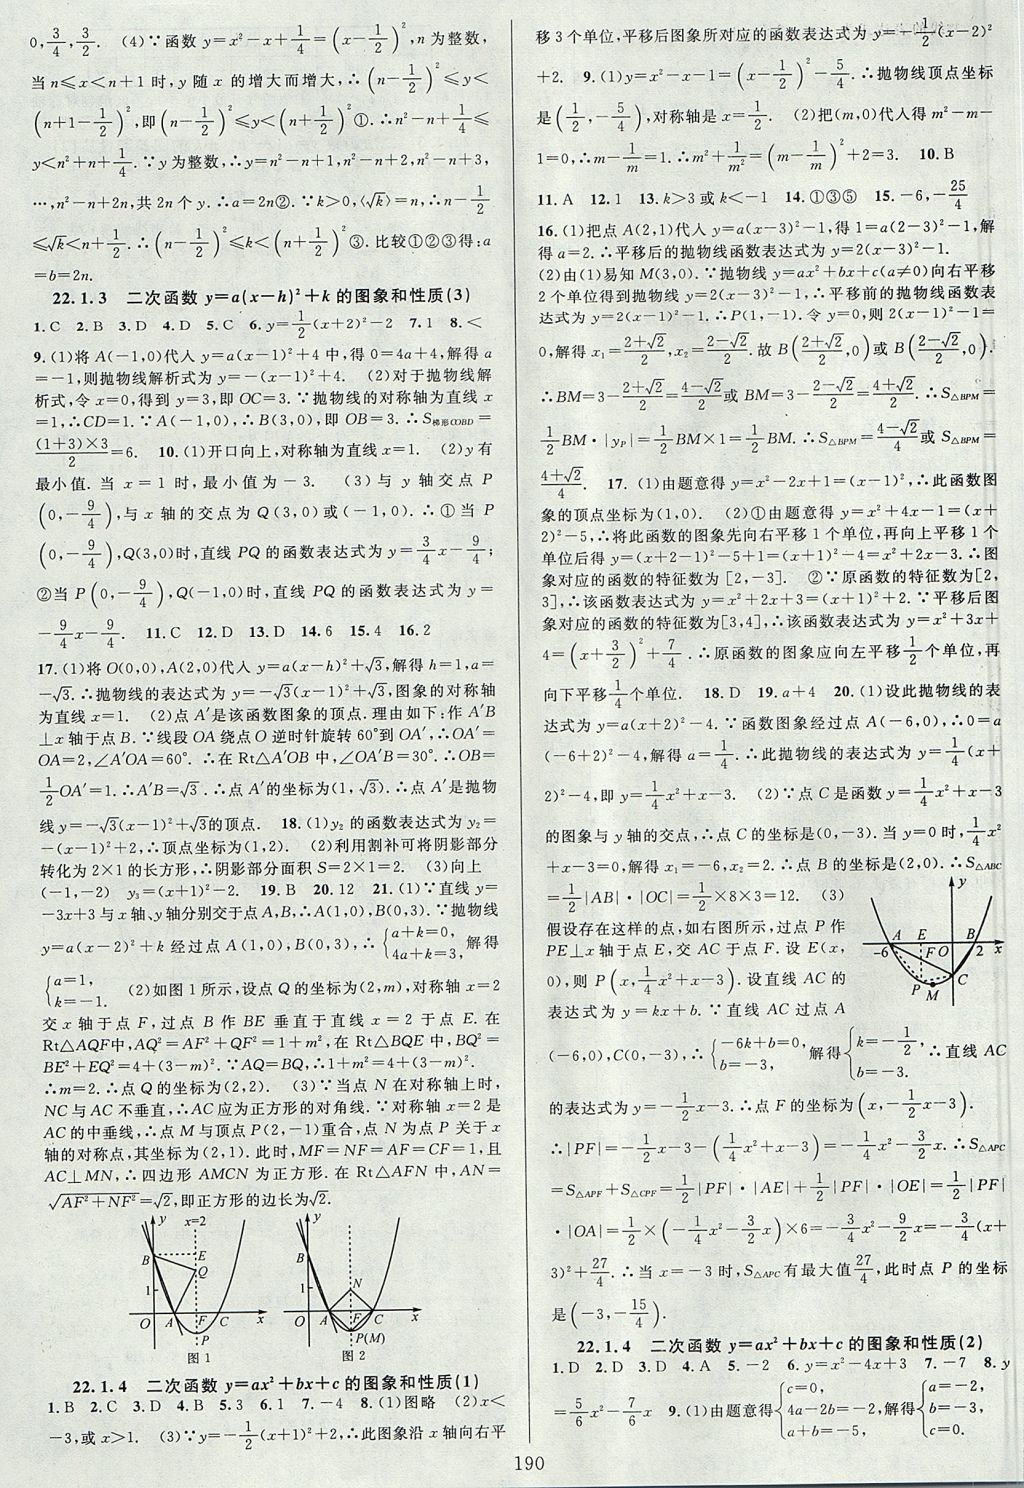 0,3/4,3/2. (4)∵函数 y=x²-x+1/4=(x-1/2)²,n为整数,
当 n≤x<n+1时,y 随 x 的增大而增大,∴(n-1/2)²≤y<
(n+1-1/2)²,即(n-1/2)²≤y<(n+1/2)²①.∴n²-n+1/4≤
y<n²+n+1/4.∵y为整数,∴y=n²-n+1,n²-n+2,n²-n+3,
…,n²-n+2n,共2n个y.∴a=2n②.∵k>0,⟨√k⟩=n,∴n-1/2
≤√k<n+1/2.∴(n-1/2)²≤k<(n+1/2)²③.比较①②③得:a
=b=2n.
22.1.3 二次函数 y=a(x-h)²+k的图象和性质(3)
1.C 2.B 3.D 4.D 5.C 6.y=1/2(x+2)²-2 7.1 8.<
9.(1)将A(-1,0)代人 y=a(x-1)²+4中,得0=4a+4,解得a
=-1,则抛物线解析式为y=-(x-1)²+4. (2)对于抛物线解
析式,令x=0,得到y=3,即OC=3.∵抛物线的对称轴为直线x
=1,∴CD=1.∵A(-1,0),∴B(3,0),即OB=3.∴S梯形COBD=
(1+3)×3/2=6. 10.(1)开口向上,对称轴为直线x=1. (2)y有
最小值.当 x=1时,最小值为-3. (3)与 y 轴交点 P
(0,-9/4),与 x 轴的交点为 Q(3,0)或(-1,0).∴①当 P
(0,-9/4),Q(3,0)时,直线 PQ 的函数表达式为 y=3/4x-9/4;
②当 P(0,-9/4),Q(-1,0)时,直线 PQ 的函数表达式为 y=
-9/4x-9/4. 11.C 12.D 13.D 14.6 15.4 16.2
17.(1)将O(0,0),A(2,0)代人 y=a(x-h)²+√3,解得h=1,a=
-√3.∴抛物线的表达式为y=-√3(x-1)²+√3,图象的对称轴
为直线x=1. (2)点A′是该函数图象的顶点.理由如下:作A′B
⊥x轴于点B.∵线段OA绕点O逆时针旋转60°到OA′,∴OA′=
OA=2,∠A′OA=60°.∴在Rt△A′OB中,∠OA′B=30°.∴OB=
1/2OA′=1.∴A′B=√3.∴点A′的坐标为(1,√3).∴点A′为抛物
线y=-√3(x-1)²+√3的顶点. 18.(1)y₂的函数表达式为y₂=
-(x-1)²+2,∴顶点坐标为(1,2). (2)利用割补可将阴影部分
转化为2×1的长方形,∴阴影部分面积S=2×1=2. (3)向上
(-1,-2) y₃=(x+1)²-2. 19.B 20.12 21.(1)∵直线y=
-3x+3与x轴、y轴分别交于点A,B,∴A(1,0),B(0,3).∵抛物线
y=a(x-2)²+k经过点A(1,0),B(0,3),∴{a+k=0, 4a+k=3, 解得
{a=1, k=-1. (2)如图1所示,设点Q的坐标为(2,m),对称轴x=2
交x轴于点F,过点B作BE垂直于直线x=2于点E.在
Rt△AQF中,AQ²=AF²+QF²=1+m²,在Rt△BQE中,BQ²=
BE²+EQ²=4+(3-m)².∵AQ=BQ,∴1+m²=4+(3-m)².
∴m=2.∴点Q的坐标为(2,2). (3)∵当点N在对称轴上时,
NC与AC不垂直,∴AC应为正方形的对角线.∵对称轴x=2是
AC的中垂线,∴点M与顶点P(2,-1)重合,点N为点P关于x
轴的对称点,其坐标为(2,1).此时,MF=NF=AF=CF=1,且
AC⊥MN,∴四边形AMCN为正方形.在Rt△AFN中,AN=
√(AF²+NF²)=√2,即正方形的边长为√2.
y x=2 B E Q 1 O A F C x P
y B N 1 O A F C x P(M)
图1 图2
22.1.4 二次函数 y=ax²+bx+c的图象和性质(1)
1.B 2.C 3.D 4.B 5.3 6.1 7.-4 8.(1)图略 (2)x<
-3,或x>1. (3)∵y=-1/2(x+1)²+2,∴此图象沿x轴向右平
移3个单位,平移后图象所对应的函数表达式为 y=-1/2(x-2)²
+2. 9.(1)y=x²-x-1=(x-1/2)²-5/4.∴抛物线顶点坐标
是(1/2,-5/4),对称轴是x=1/2. (2)把(m,0)代人得m²-m-
1=0,∴m-1/m=1.∴m²+1/m²=(m-1/m)²+2=3. 10.B
11.A 12.1 13.k>3或k<-1 14.①③⑤ 15.-6,-25/4
16.(1)把点A(2,1)代人y=a(x-3)²-1,得1=a(2-3)²-1,解
得a=2.∴平移后的抛物线函数表达式为y=2(x-3)²-1.
(2)由(1)易知M(3,0).∵抛物线y=ax²+bx+c(a≠0)向右平移
2个单位得到抛物线y=2(x-3)²-1,∴平移前的抛物线函数表
达式为y=2(x-1)²-1.∴P(1,-1).令y=0,则2(x-1)²-1=
0,解得x₁=(2+√2)/2,x₂=(2-√2)/2.故B((2+√2)/2,0)或B((2-√2)/2,0).
∴BM=3-(2+√2)/2=(4-√2)/2或BM=3-(2-√2)/2=(4+√2)/2.∴S△BPM=
1/2BM·|yP|=1/2BM×1=1/2BM.∴S△BPM=(4-√2)/4或S△BPM=
(4+√2)/4. 17.(1)由题意得y=x²-2x+1=(x-1)²,∴此函数图
象的顶点坐标为(1,0). (2)①由题意得y=x²+4x-1=(x+
2)²-5,∴将此函数的图象先向右平移1个单位,再向上平移1个
单位后得y=(x+2-1)²-5+1=(x+1)²-4=x²+2x-3.∴图
象对应的函数的特征数为[2,-3]. ②∵原函数的特征数为[2,
3],∴该函数表达式为y=x²+2x+3=(x+1)²+2.∵平移后图
象对应的函数的特征数为[3,4],∴该函数表达式为y=x²+3x+
4=(x+3/2)²+7/4.∴原函数的图象应向左平移1/2个单位,再
向下平移1/4个单位. 18.D 19.a+4 20.(1)设此抛物线的表
达式为y=a(x+2)²-4.∵函数图象经过点A(-6,0),∴0=a
(-6+2)²-4.解得a=1/4.∴此抛物线的表达式为y=1/4(x+
2)²-4,即y=1/4x²+x-3. (2)∵点C是函数y=1/4x²+x-3
的图象与y轴的交点,∴点C的坐标是(0,-3).当y=0时,1/4x²
+x-3=0,解得x₁=-6,x₂=2.∴点B的坐标是(2,0).∴S△ABC
=1/2|AB|·|OC|=1/2×8×3=12. (3)
假设存在这样的点,如右图所示,过点P作
PE⊥x轴于点E,交AC于点F.设E(x,
0),则P(x,1/4x²+x-3).设直线AC的
表达式为y=kx+b.∵直线AC过点A
y A E B -6 F O 2 x C P M
(-6,0),C(0,-3),∴{-6k+b=0, b=-3, 解得{k=-1/2, b=-3. ∴直线AC
的表达式为y=-1/2x-3.∴点F的坐标为(x,-1/2x-3).
∴|PF|=-1/2x-3-(1/4x²+x-3)=-1/4x²-3/2x.∴S△APC
=S△APF+S△CPF=1/2|PF|·|AE|+1/2|PF|·|OE|=1/2|PF|
·|OA|=1/2×(-1/4x²-3/2x)×6=-3/4x²-9/2x=-3/4(x+
3)²+27/4.∴当x=-3时,S△APC有最大值27/4,此时点P的坐标
是(-3,-15/4).
22.1.4 二次函数 y=ax²+bx+c的图象和性质(2)
1.D 2.D 3.D 4.A 5.-2 6.y=x²-4x+3 7.-7 8.y
=5/6x²-7/6x 9.(1)由题意得{c=0, 4a-2b=-2, a+b=-5, 解得{a=-2, b=-3, c=0.
190